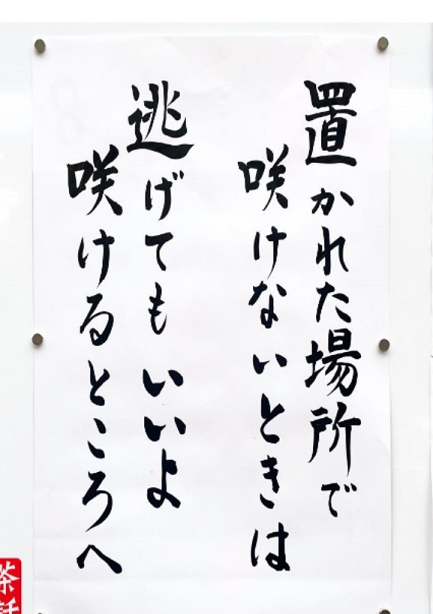 置かれた場所で
咲けないときは
逃げてもいいよ
咲けるところへ
茶話